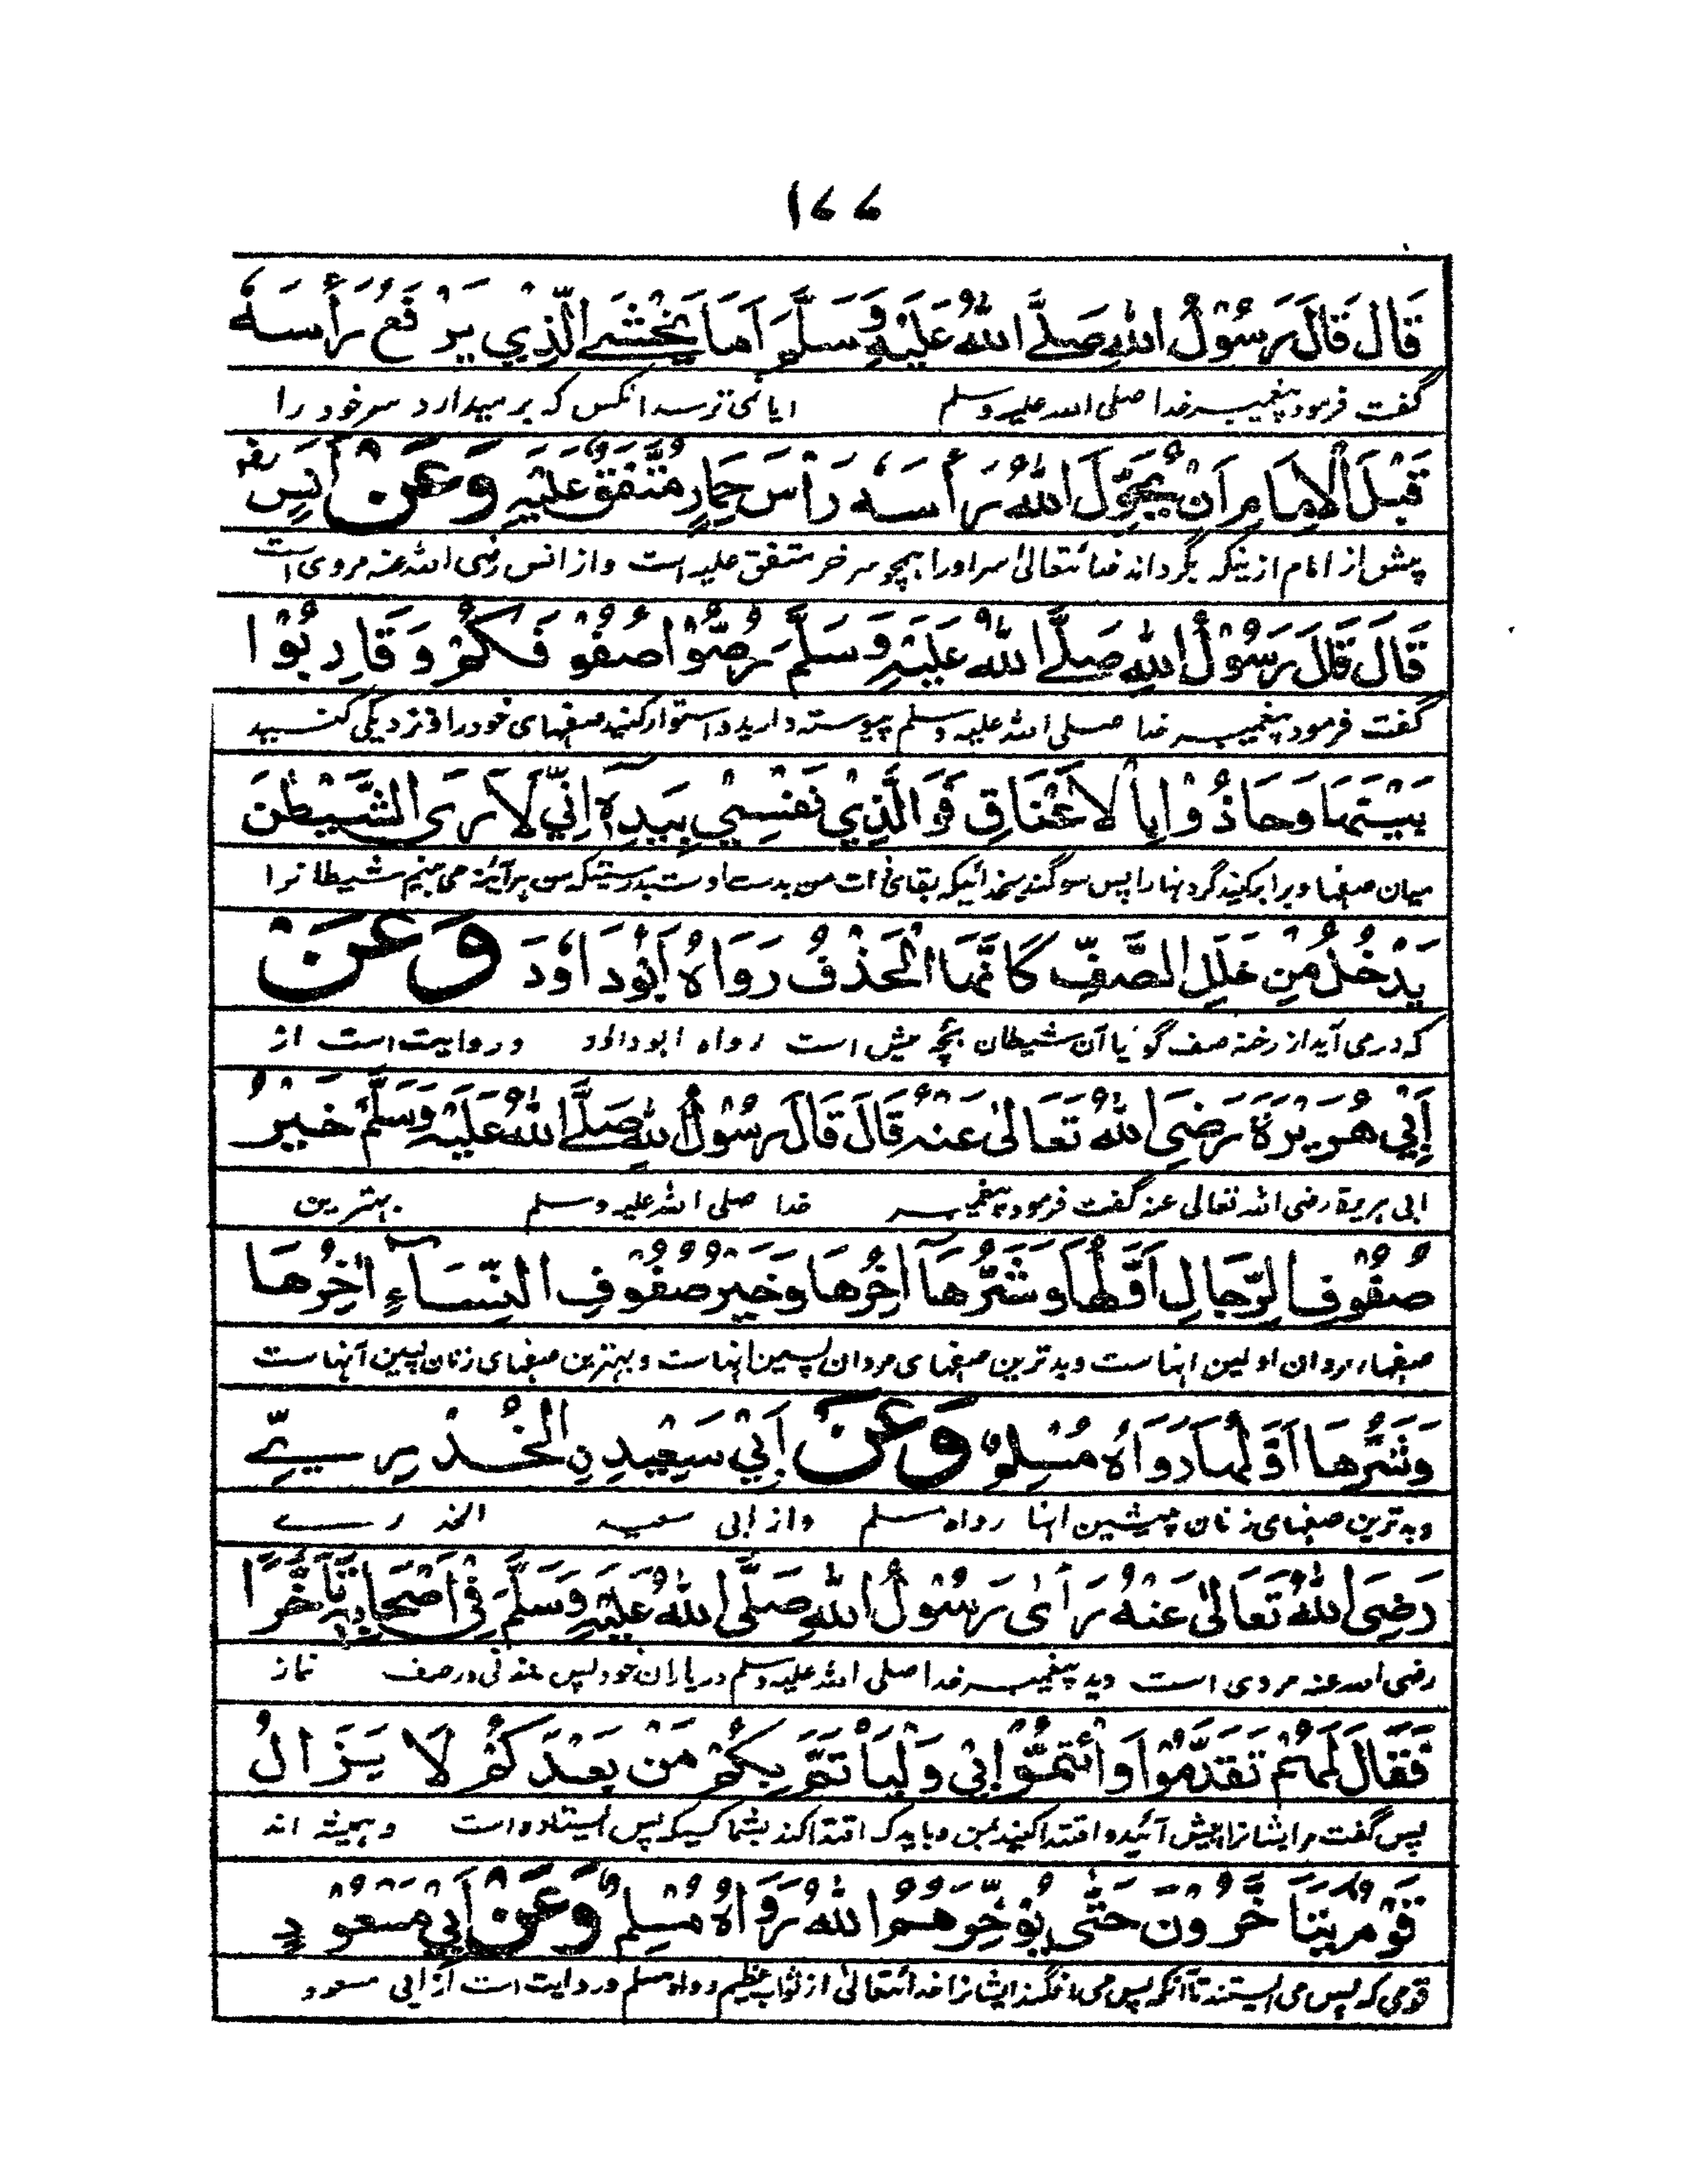 ۱۷۷
قَالَ قَالَ رَسُوْلُ اللّٰهِ صَلَّے اللّٰهُ عَلَيْهِ وَسَلَّمَ اَمَا يَخْشَے الَّذِي يَرْفَعُ رَأْسَهٗ
گفت فرمود پیغمبر خدا صلی الله علیه وسلم ایا نمی ترسد انکس که بر میدارد سر خود را
قَبْلَ الْاِمَامِ اَنْ يُّحَوِّلَ اللّٰهُ رَأْسَهٗ رَأْسَ حِمَارٍ مُتَّفَقٌ عَلَيْهِ وَعَنْ اَنَسٍ رضه
پیش از امام ازینکه بگرداند خدائتعالیٰ سر اورا همچو سر خر متفق علیه است واز انس رضی الله عنه مروی است
قَالَ قَالَ رَسُوْلُ اللّٰهِ صَلَّے اللّٰهُ عَلَيْهِ وَسَلَّمَ رُصُّوْا صُفُوْفَكُمْ وَقَارِبُوْا
گفت فرمود پیغمبر خدا صلی الله علیه وسلم پیوسته دارید و استوار کنید صفهای خود را و نزدیکی کنید
بَيْنَهَا وَحَاذُوْا بِالْاَعْنَاقِ فَوَالَّذِيْ نَفْسِيْ بِيَدِهٖ اِنِّيْ لَاَرَی الشَّيْطٰنَ
میان صفها و برابر کنید گردنها را پس سوگند بخدائیکه بقای ذات من بدست اوست بدرستیکه من هرآئنه می بینم شیطانرا
يَدْخُلُ مِنْ خَلَلِ الصَّفِّ كَاَنَّهَا الْحَذَفُ رَوَاهُ اَبُوْدَاوٗدَ وَعَنْ
که درمی آید از رخنه صف گویا آن شیطان بچّه میش است رواه ابوداود و روایت است از
اَبِيْ هُرَيْرَةَ رَضِيَ اللّٰهُ تَعَالیٰ عَنْهُ قَالَ قَالَ رَسُوْلُ اللّٰهِ صَلَّے اللّٰهُ عَلَيْهِ وَسَلَّمَ خَيْرُ
ابی هریرة رضی الله تعالی عنه گفت فرمود پیغمبر خدا صلی الله علیه وسلم بهترین
صُفُوْفِ الرِّجَالِ اَوَّلُهَا وَشَرُّهَا اٰخِرُهَا وَخَيْرُ صُفُوْفِ النِّسَآءِ اٰخِرُهَا
صفهاء مردان اولین انهاست وبدترین صفهای مردان پسین انهاست و بهترین صفهای زنان پسین آنهاست
وَشَرُّهَا اَوَّلُهَا رَوَاهُ مُسْلِمٌ وَعَنْ اَبِيْ سَعِيْدِنِ الْخُدْرِيِّ
وبدترین صفهای زنان پیشین انها رواه مسلم واز ابی سعید الخدرے
رَضِيَ اللّٰهُ تَعَالیٰ عَنْهُ رَأیٰ رَسُوْلُ اللّٰهِ صَلَّی اللّٰهُ عَلَيْهِ وَسَلَّمَ فِيْ اَصْحَابِهٖ تَأَخُّرًا
رضی الله عنه مروی است دید پیغمبر خدا صلی الله علیه وسلم در یاران خود پس ماندنی در صف نماز
فَقَالَ لَهُمْ تَقَدَّمُوْا وَأْتَمُّوْا بِيْ وَلْيَأْتَمَّ بِكُمْ مَنْ بَعْدَكُمْ لَا يَزَالُ
پس گفت مر ایشانرا پیش آئید و اقتدا کنید بمن وباید که اقتدا کند بشما کسیکه پس ایستاده است وهمیشه اند
قَوْمٌ يَتَأَخَّرُوْنَ حَتّٰی يُؤَخِّرَهُمُ اللّٰهُ رَوَاهُ مُسْلِمٌ وَعَنْ اَبِيْ مَسْعُوْدٍ
قومی که پس می ایستند تا آنکه پس می افگند ایشانرا خدائتعالیٰ از ثواب عظیم رواه مسلم و روایت است از ابی مسعود